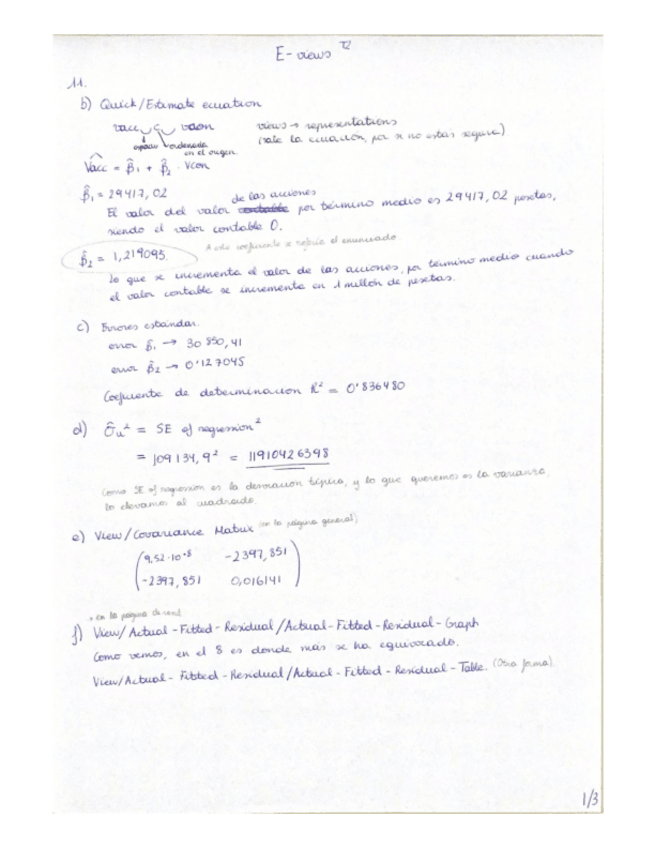 E-views T2
11.
b) Quick/Estimate ecuation
vacc c vacon views → representations
espacio ordenada en el origen (sale la ecuación, por si no estas segura)
Vacc = β̂₁ + β̂₂ · Vcon
β̂₁ = 29417,02
de las acciones
El valor del valor contable por término medio es 29417,02 pesetas,
siendo el valor contable 0.
A este coeficiente se refería el enunciado
β̂₂ = 1,219095.
lo que se incrementa el valor de las acciones, por término medio cuando
el valor contable se incrementa en 1 millón de pesetas.
c) Errores estándar.
error β̂₁ → 30 850,41
error β̂₂ → 0'127045
Coeficiente de determinacion R² = 0'836480
d) σ̂u² = SE of regression²
= 109134,9² = 11910426398
Como SE of regression es la desviación típica, y lo que queremos es la varianza,
lo elevamos al cuadrado.
e) View/Covariance Matrix (en la página general)
9,52·10⁻⁸ -2397,851
-2397,851 0,016141
→ en la página general
f) View/Actual-Fitted-Residual/Actual-Fitted-Residual-Graph
Como vemos, en el 8 es donde más se ha equivocado.
View/Actual-Fitted-Residual/Actual-Fitted-Residual-Table. (Otra forma).
1/3